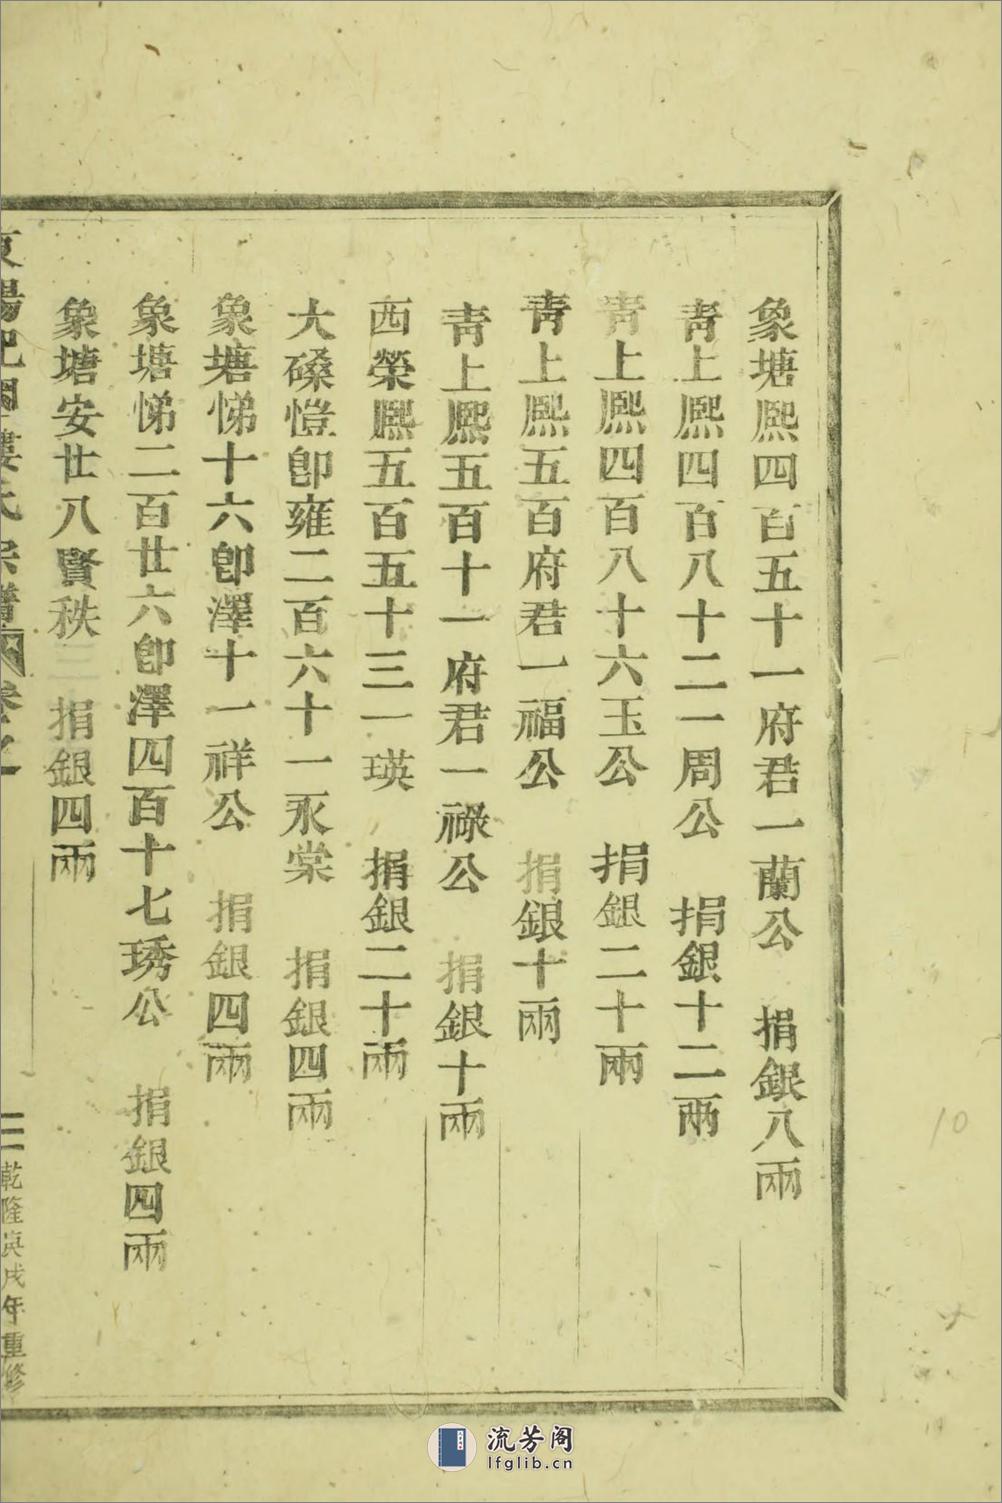 象塘熈四百五十一府君一蘭公　捐銀八兩
青上熈四百八十二一周公　捐銀十二兩
青上熈四百八十六玉公　捐銀二十兩
青上熈五百府君一福公　捐銀十兩
青上熈五百十一府君一祿公　捐銀十兩
西榮熈五百五十三一瑛　捐銀二十兩
大磉愷卽雍二百六十一永棠　捐銀四兩
象塘悌十六卽澤十一祥公　捐銀四兩
象塘悌二百廿六卽澤四百十七琇公　捐銀四兩
象塘安廿八賢秩三捐銀四兩
東陽紀國婁氏宗譜　卷之一　二　乾隆庚戌年重修
流芳阁
lfglib.cn
10